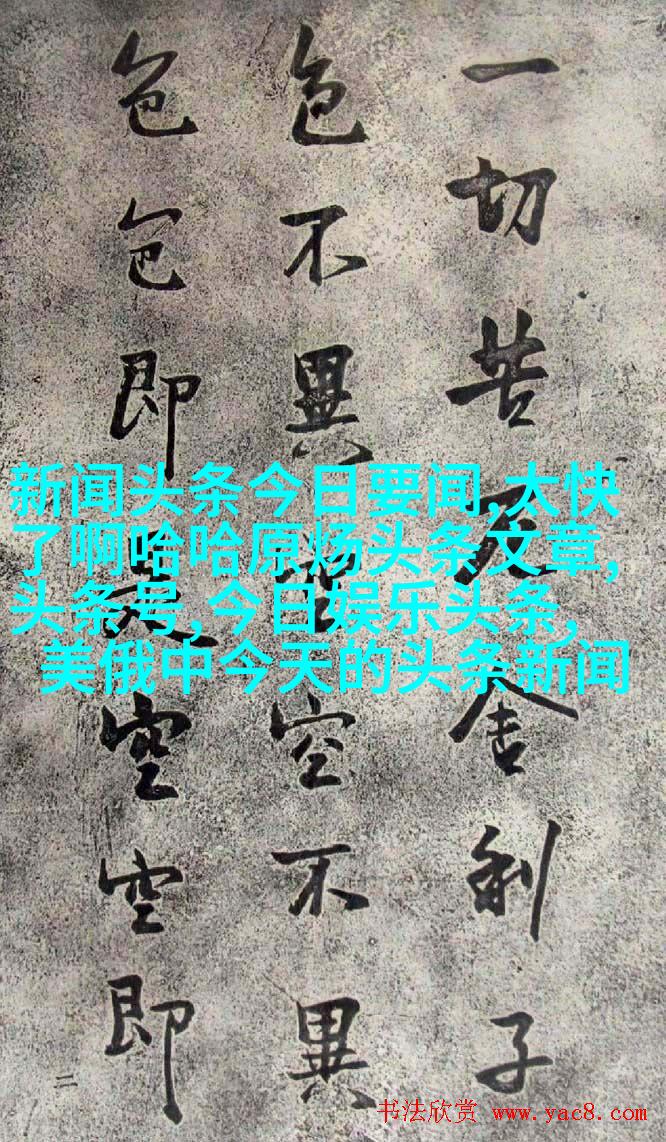 一切苦厄舍利子
色不異空空不異
色色即是空空即
二
新闻头条今日要闻,太快
了啊哈哈原炀头条文章,
头条号,今日娱乐头条,
美俄中今天的头条新闻
书法欣赏 www.yac8.com